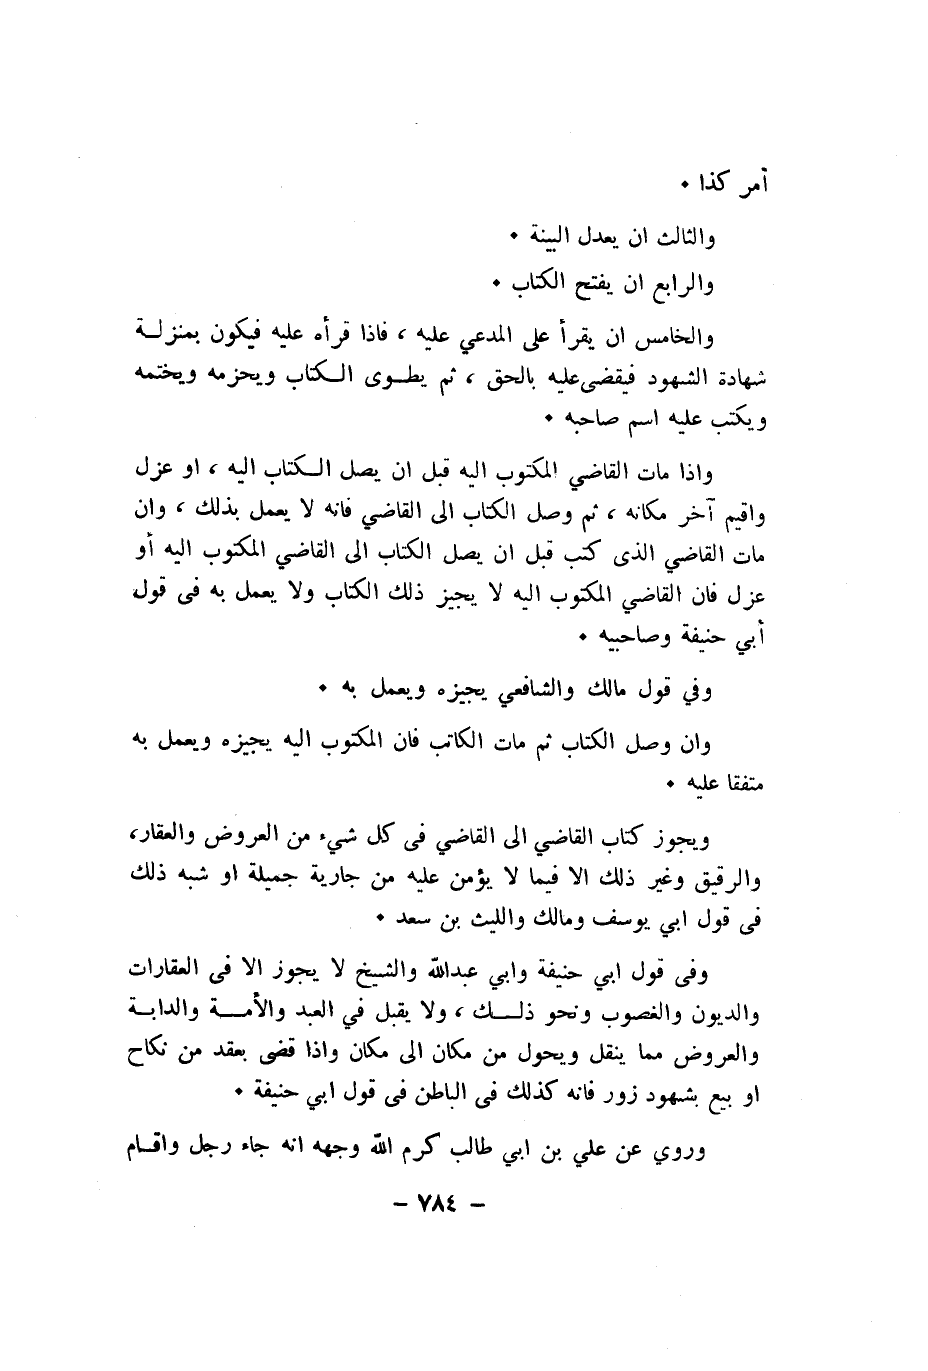 أمر كذا ٠
والثالث ان يعدل البينة ٠
والرابع ان يفتح الكتاب ٠
والخامس ان يقرأ على المدعي عليه ، فاذا قرأه عليه فيكون بمنزلة
شهادة الشهود فيقضى عليه بالحق ، ثم يطوى الكتاب ويحزمه ويختمه
ويكتب عليه اسم صاحبه ٠
واذا مات القاضي المكتوب اليه قبل ان يصل الكتاب اليه ، او عزل
واقيم آخر مكانه ، ثم وصل الكتاب الى القاضي فانه لا يعمل بذلك ، وان
مات القاضي الذى كتب قبل ان يصل الكتاب الى القاضي المكتوب اليه أو
عزل فان القاضي المكتوب اليه لا يجيز ذلك الكتاب ولا يعمل به فى قول
أبي حنيفة وصاحبيه ٠
وفي قول مالك والشافعي يجيزه ويعمل به ٠
وان وصل الكتاب ثم مات الكاتب فان المكتوب اليه يجيزه ويعمل به
متفقا عليه ٠
ويجوز كتاب القاضي الى القاضي فى كل شيء من العروض والعقار،
والرقيق وغير ذلك الا فيما لا يؤمن عليه من جارية جميلة او شبه ذلك
فى قول ابي يوسف ومالك والليث بن سعد ٠
وفى قول ابي حنيفة وابي عبدالله والشيخ لا يجوز الا فى العقارات
والديون والغصوب ونحو ذلك ، ولا يقبل في العبد والأمة والدابة
والعروض مما ينقل ويحول من مكان الى مكان واذا قضى بعقد من نكاح
او بيع بشهود زور فانه كذلك فى الباطن فى قول ابي حنيفة ٠
وروي عن علي بن ابي طالب كرم الله وجهه انه جاء رجل واقام
— ٧٨٤ —